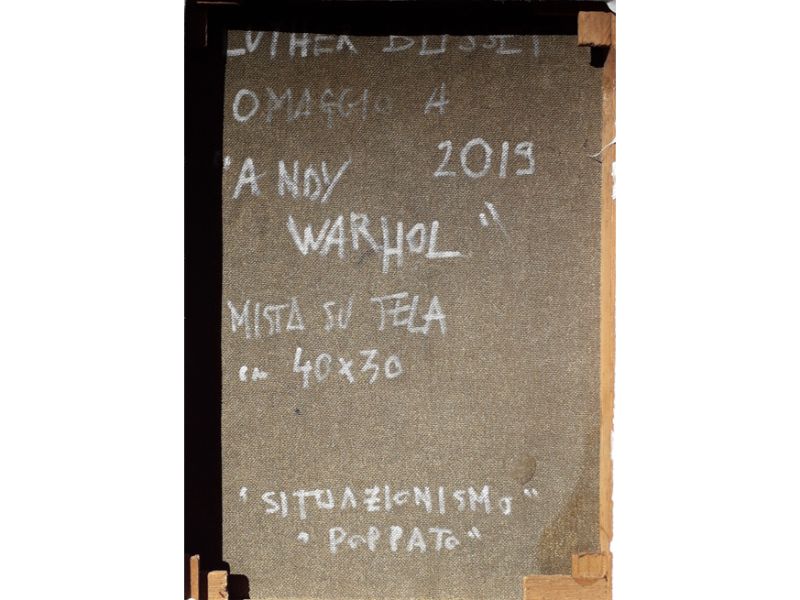 LUTHER BLISSET
OMAGGIO A
"ANDY 2019
WARHOL"
MISTA SU TELA
cm 40x30
"SITUAZIONISMO"
"POPPATO"